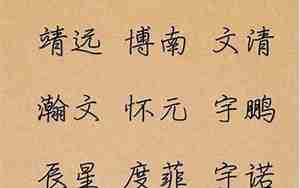 靖远 博南 文清
瀚文 怀元 宇鹏
辰星 度菲 宇诺